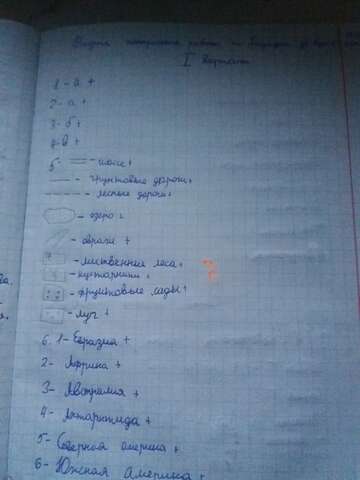 I Вариант
1- а +
2- а +
3- б +
4- в +
5. - шоссе +
- грунтовые дороги +
- лесные дороги +
- озеро +
- овраги +
- лиственные леса +
- кустарники +
- фруктовые сады +
- луг +
6. 1- Евразия +
2- Африка +
3- Австралия +
4- Антарктида +
5- Северная америка +
6- Южная америка +